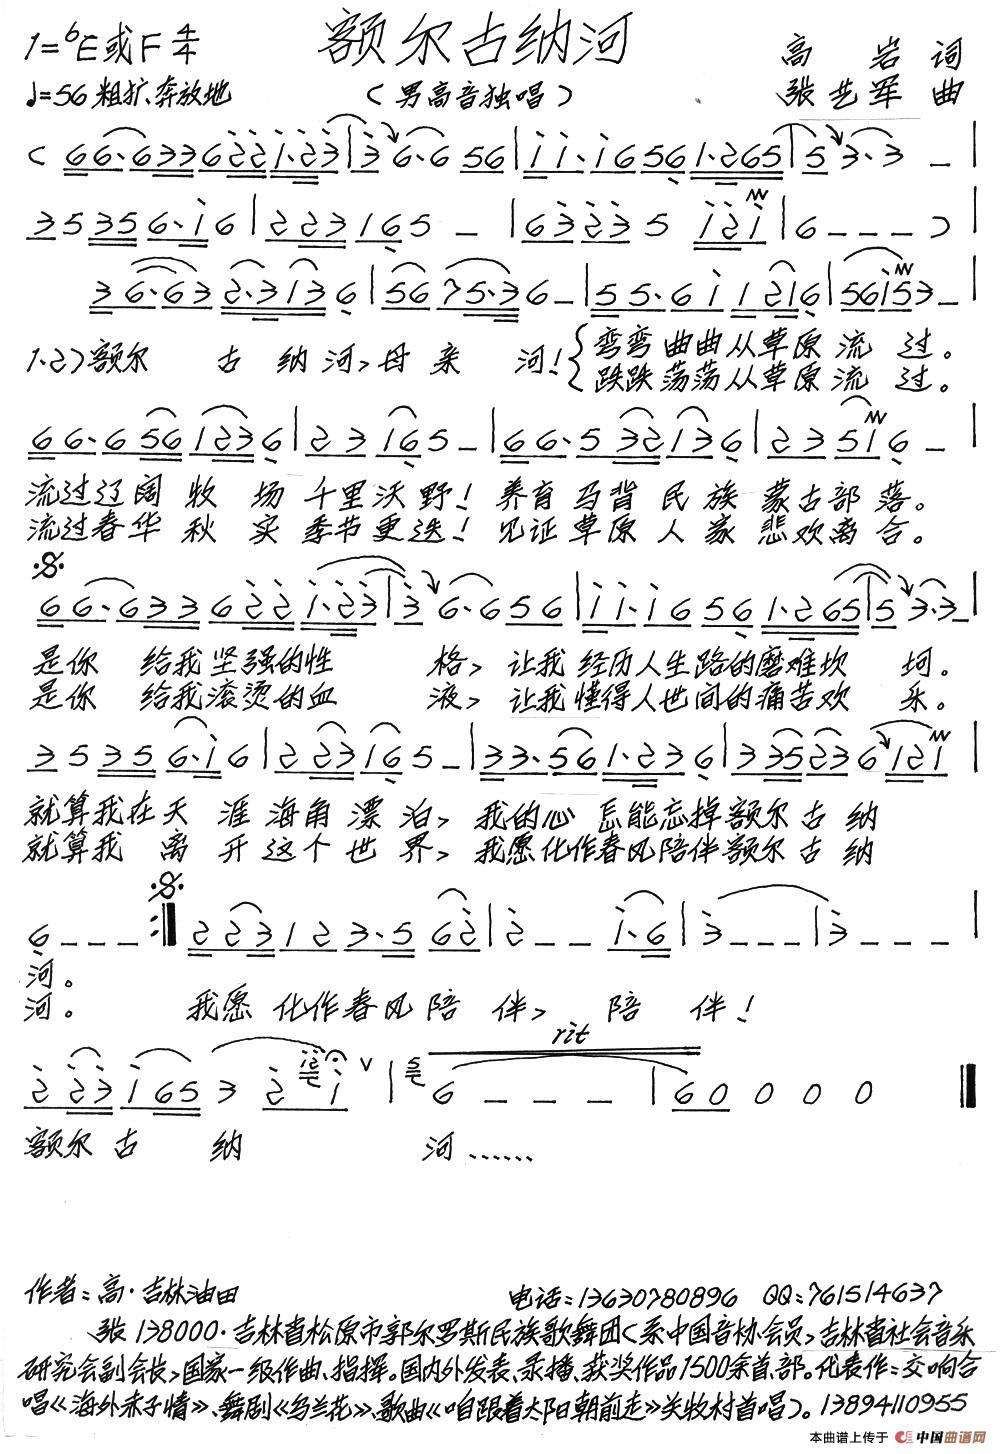 额尔古纳河
1=♭E或F 4/4
高 岩 词
♩=56 粗犷、奔放地
(男高音独唱)
张艺军 曲
1、2)额尔 古纳河,母亲 河!
弯弯曲曲从草原流 过。
跌跌荡荡从草原流 过。
流过辽阔 牧 场 千里沃 野!养育马背民族蒙古部落。
流过春华 秋 实 季节更迭!见证草原人家悲欢离合。
是你 给我坚强的性 格,让我经历人生路的磨难坎 坷。
是你 给我滚烫的血 液,让我懂得人世间的痛苦欢 乐。
就算我在天 涯海角漂泊,我的心怎能忘掉额尔古纳
就算我 离 开这个世界,我愿化作春风陪伴额尔古纳
河。
河。 我愿化作春风陪 伴,陪 伴!
rit
额尔古 纳 河……
作者:高·吉林油田 电话:13630780896 QQ:761514637
张138000·吉林省松原市郭尔罗斯民族歌舞团(系中国音协会员,吉林省社会音乐
研究会副会长,国家一级作曲、指挥。国内外发表、录播、获奖作品1500余首、部。代表作:交响合
唱《海外赤子情》、舞剧《乌兰花》、歌曲《咱跟着太阳朝前走》关牧村首唱)。13894110955
本曲谱上传于 中国曲谱网